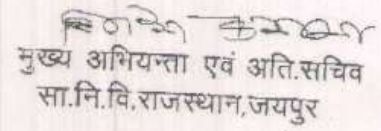 मुख्य अभियन्ता एवं अति.सचिव
सा.नि.वि.राजस्थान,जयपुर